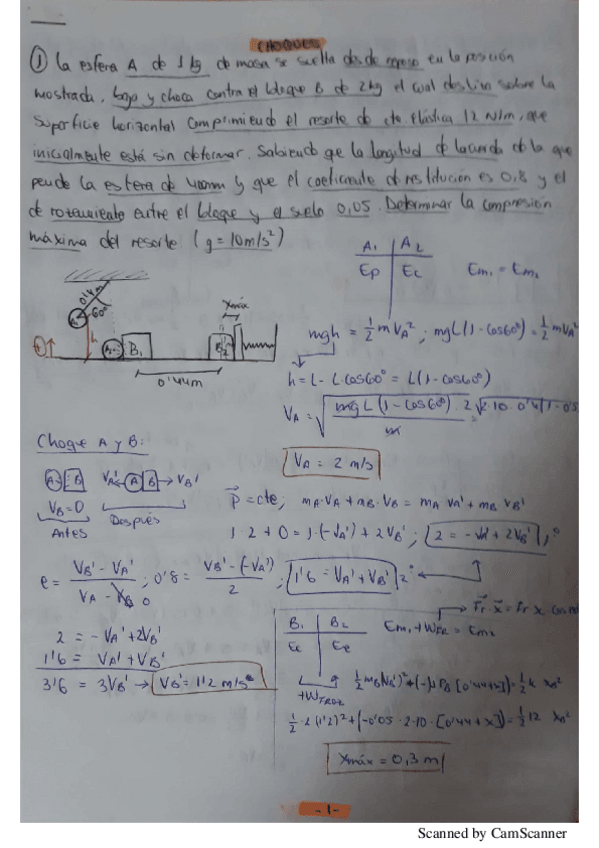 CHOQUES
① La esfera A de 1 kg de masa se suelta desde reposo en la posición
mostrada, baja y choca contra el bloque B de 2kg el cual desliza sobre la
superficie horizontal comprimiendo el resorte de cte. elástica 12 N/m, que
inicialmente está sin deformar. Sabiendo qe la longitud de la cuerda de la que
pende la esfera de 400mm y que el coeficiente de restitución es 0,8 y el
de rozamiento entre el bloque y el suelo 0,05. Determinar la compresión
máxima del resorte (g=10m/s²)
A₁ A₂
Ep Ec
Em₁ = Em₂
0'4m
60°
A
h
Xmáx
A B₁ B₂
0'44m
mgh = ½ m VA²; mgL(1-cos60°) = ½ mVA²
h = L - L cos60° = L(1-cos60°)
VA = √ mgL(1-cos60°)·2 / m = √2·10·0'4(1-0'5
VA = 2 m/s
Choque A y B:
A B VA' A B VB'
VB=0
Antes Después
P = cte; mA·VA + mB·VB = mA VA' + mB VB'
1·2+0 = 1·(-VA') + 2VB'; 2 = -VA' + 2VB' 1°
e = VB' - VA' / VA - VB 0 ; 0'8 = VB' - (-VA') / 2 ; 1'6 = VA' + VB' 2°
Fr·x = Fr x
2 = -VA' + 2VB'
1'6 = VA' + VB'
3'6 = 3VB' → VB' = 1'2 m/s
B₁ B₂
Ec Ee
Em₁ + WFR = Em₂
½ mB(VB')² + (-μPB [0'44+x]) = ½ k Xm²
½·2 (1'2)² + (-0'05·2·10·[0'44+x]) = ½ 12 Xm²
Xmáx = 0,3 m
-1-
Scanned by CamScanner